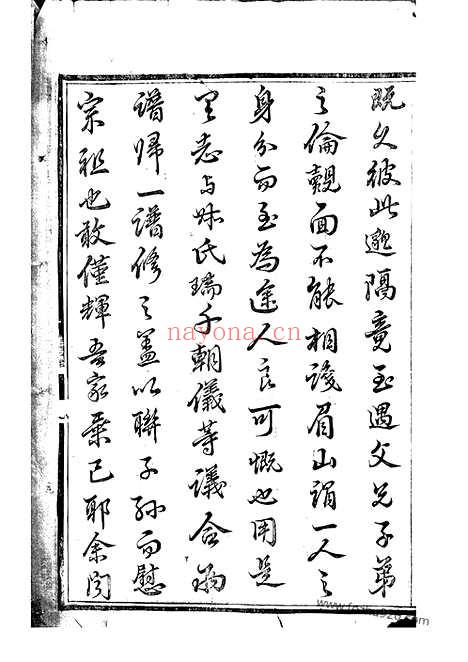 既久彼此邈隔竟至遇父兄子弟
之倫覿面不能相識眉山謂一人之
身分而至為途人良可慨也用是
里志与妹氏瑞千朝儀等議合
譜歸一譜修之盖以聯子孫而慰
宗祖也敢僅輝吾家乗已耶余閲
nayona.cn